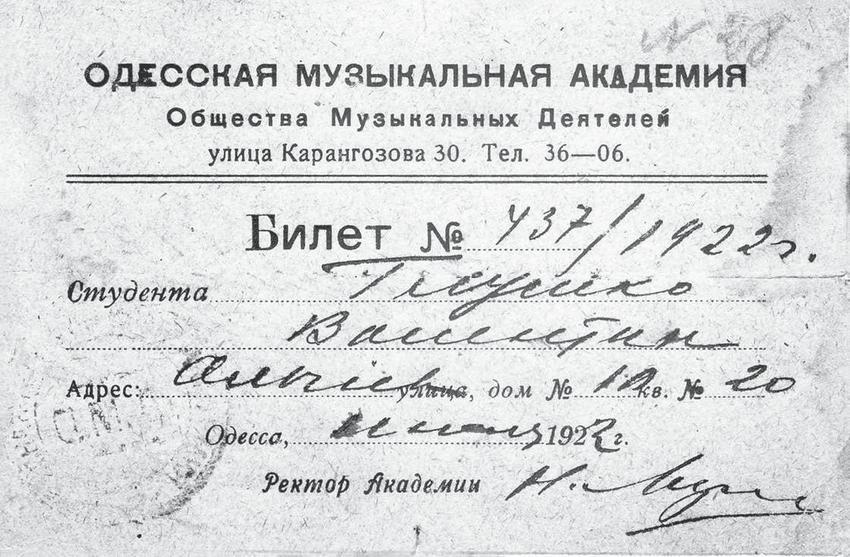 ОДЕССКАЯ МУЗЫКАЛЬНАЯ АКАДЕМИЯ
Общества Музыкальных Деятелей
улица Карангозова 30. Тел. 36—06.
Билет № 437/1922г.
Студента Глушко
Валентин
Адрес: улица, дом № 10 кв. № 20
Одесса, 1922 г.
Ректор Академии